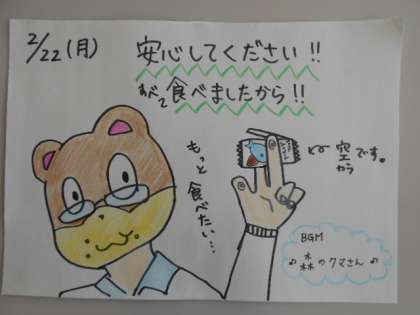 2/22(月)
安心してください!!
すべて食べましたから!!
もっと食べたい…
空です。
カラ
BGM
♪森のクマさん♪